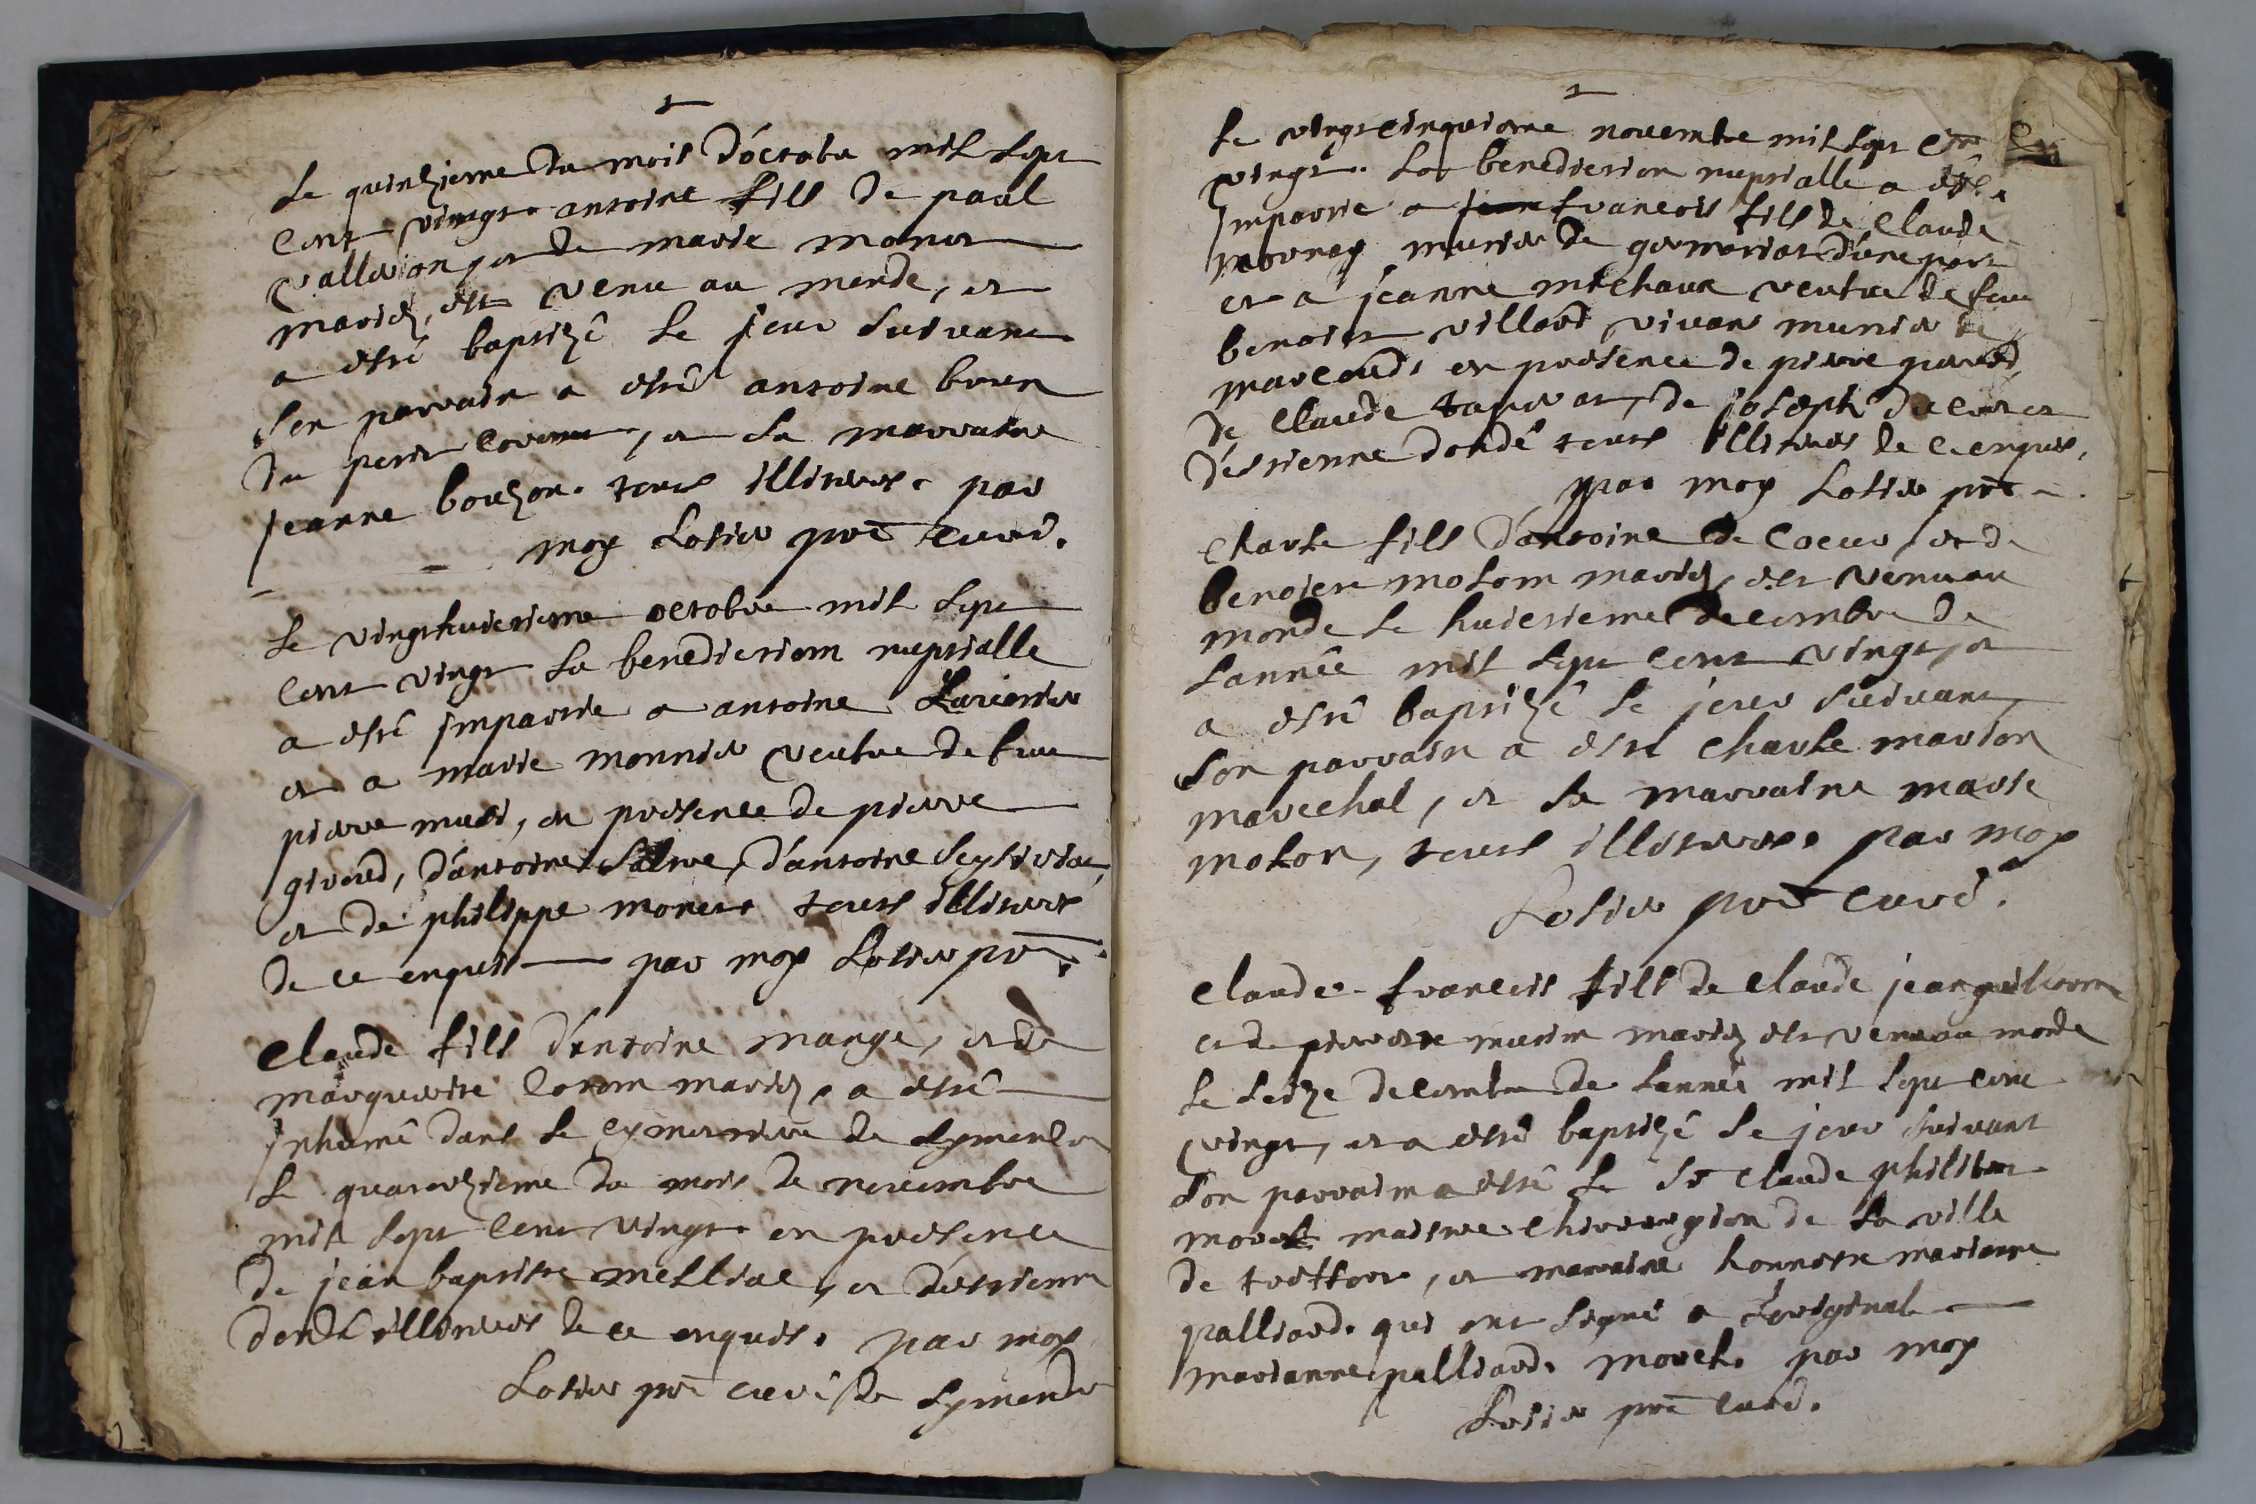 Le quinzieme du mois d'octobre mil sept
cent vingt. antoine fils de paul
valleion, et de marie monet
mariez, est venu au monde, et
a esté baptizé le jour suivant
son parrain a esté antoine brun
du petit , et sa marraine
jeanne bouzon. tous illiteres. par
moy Losier pre curé.
Le vingthuictieme octobre mil sept
cent vingt la benediction nuptialle
a esté impartie a antoine
et a marie monnier veufve de feu
pierre , en presence de pierre
giroud, d'antoine , d'antoine
et de philippe monet. tous illiteres
de ce enquis par moy Losier pre
Claude fils d'antoine mange, et de
marguerite mariez, a esté
inhumé dans le cymetiere de
Le quatorzieme du mois de novembre
mil sept cent vingt. en presence
de jean baptiste , et d'estienne
dondé illiteres de ce enquis. par moy
Losier pre curé de
Le vingtcinquieme novembre mil sept cent
vingt. La benediction nuptialle a esté
impartie a francois fils de Claude
munier de d'une part
et a jeanne michaux veufve de feu
benoist villard vivant munier de
marcoud. en presence de pierre
de Claude , de joseph et
d'estienne dondé tous illiteres de ce enquis,
par moy Losier pre
Charle fils d'antoine de Coeur, et de
benoiste moton mariez, est venu au
monde le huictieme decembre de
lannée mil sept cent vingt, et
a esté baptizé le jour suivant,
son parrain a esté Charle marion
marechal, et sa marraine marie
moton, tous illiteres. par moy
Losier pre curé.
Claude-francois fils de Claude jeanguilliaume
et de pierrette mariez est venu au monde
le seize decembre de lannée mil sept cent
vingt, et a esté baptizé le jour suivant
son parrain a esté le Sr Claude philibert
morel maistre chirurgion de la ville
de treffort, et marraine honneste marianne
palliard. qui ont signé a Loriginal
marianne palliard. morel. par moy
Losier pre curé.